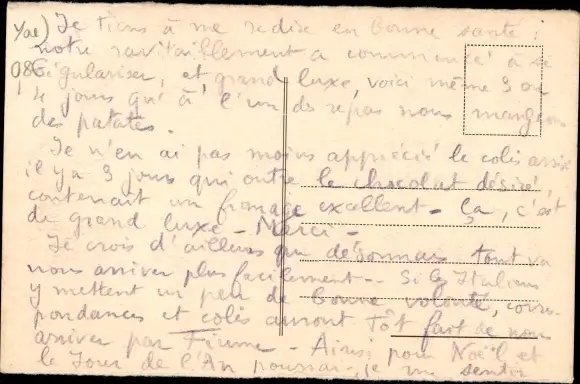 Yae) Je tiens à me redire en bonne santé ;
notre ravitaillement a commencé à se
086 régulariser, et grand luxe, voici même 3 ou
4 jours qu'à l'un des repas nous mangeons
des patates.
Je n'en ai pas moins apprécié le colis arrivé
il y a 3 jours qui outre le chocolat désiré,
contenait un fromage excellent - ça, c'est
du grand luxe - Merci -
Je crois d'ailleurs que désormais tout va
nous arriver plus facilement - Si les Italiens
y mettent un peu de bonne volonté, corres-
pondances et colis auront tôt fait de nous
arriver par Fiume - Ainsi pour Noël et
le Jour de l'An pourrai-je me sentir